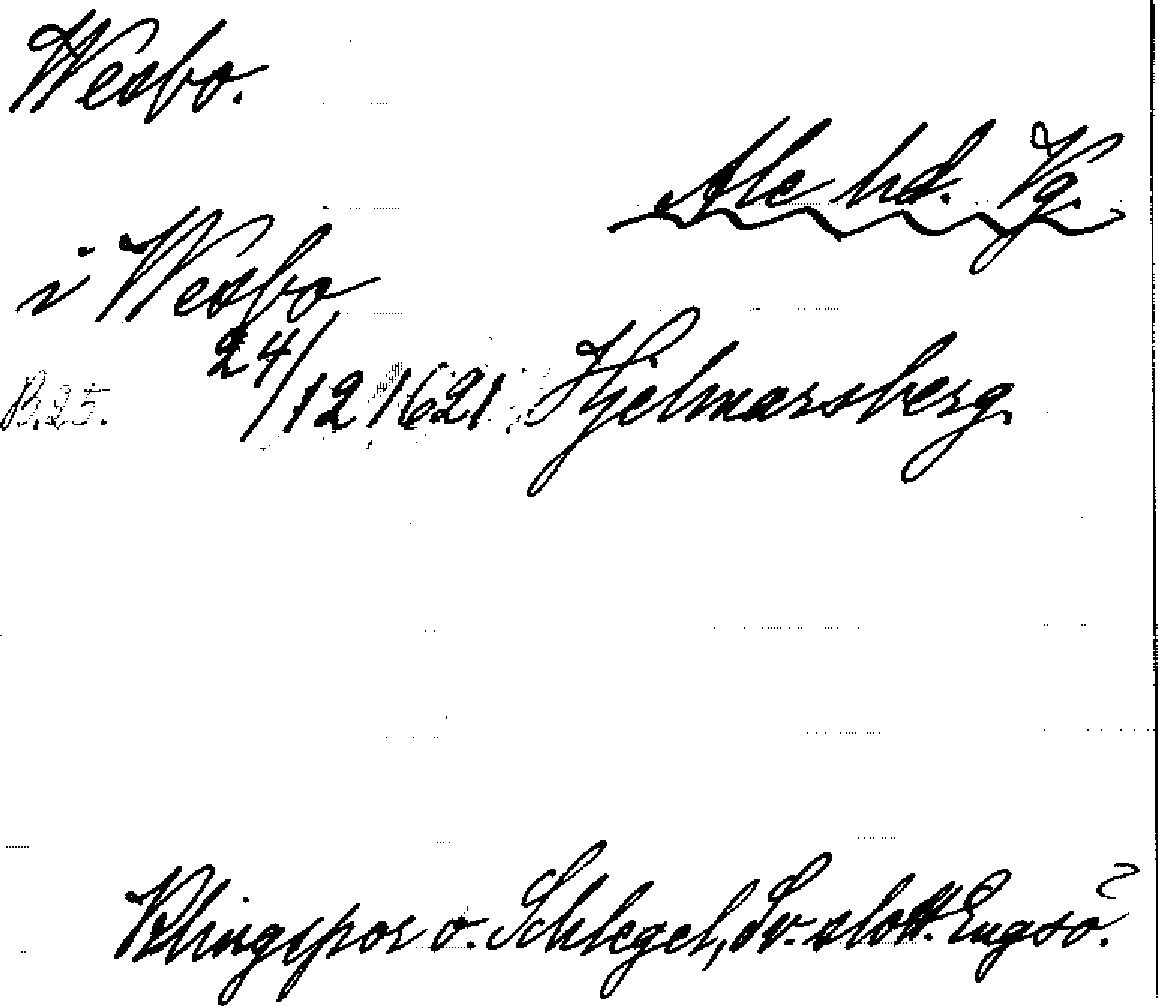 Wesbo.
Ale hd. Vg.
i Wesbo
24/12 1621 Hjelmarsberg.
B.25.
Klingspor o. Schlegel, Sv. slott. Engsö.